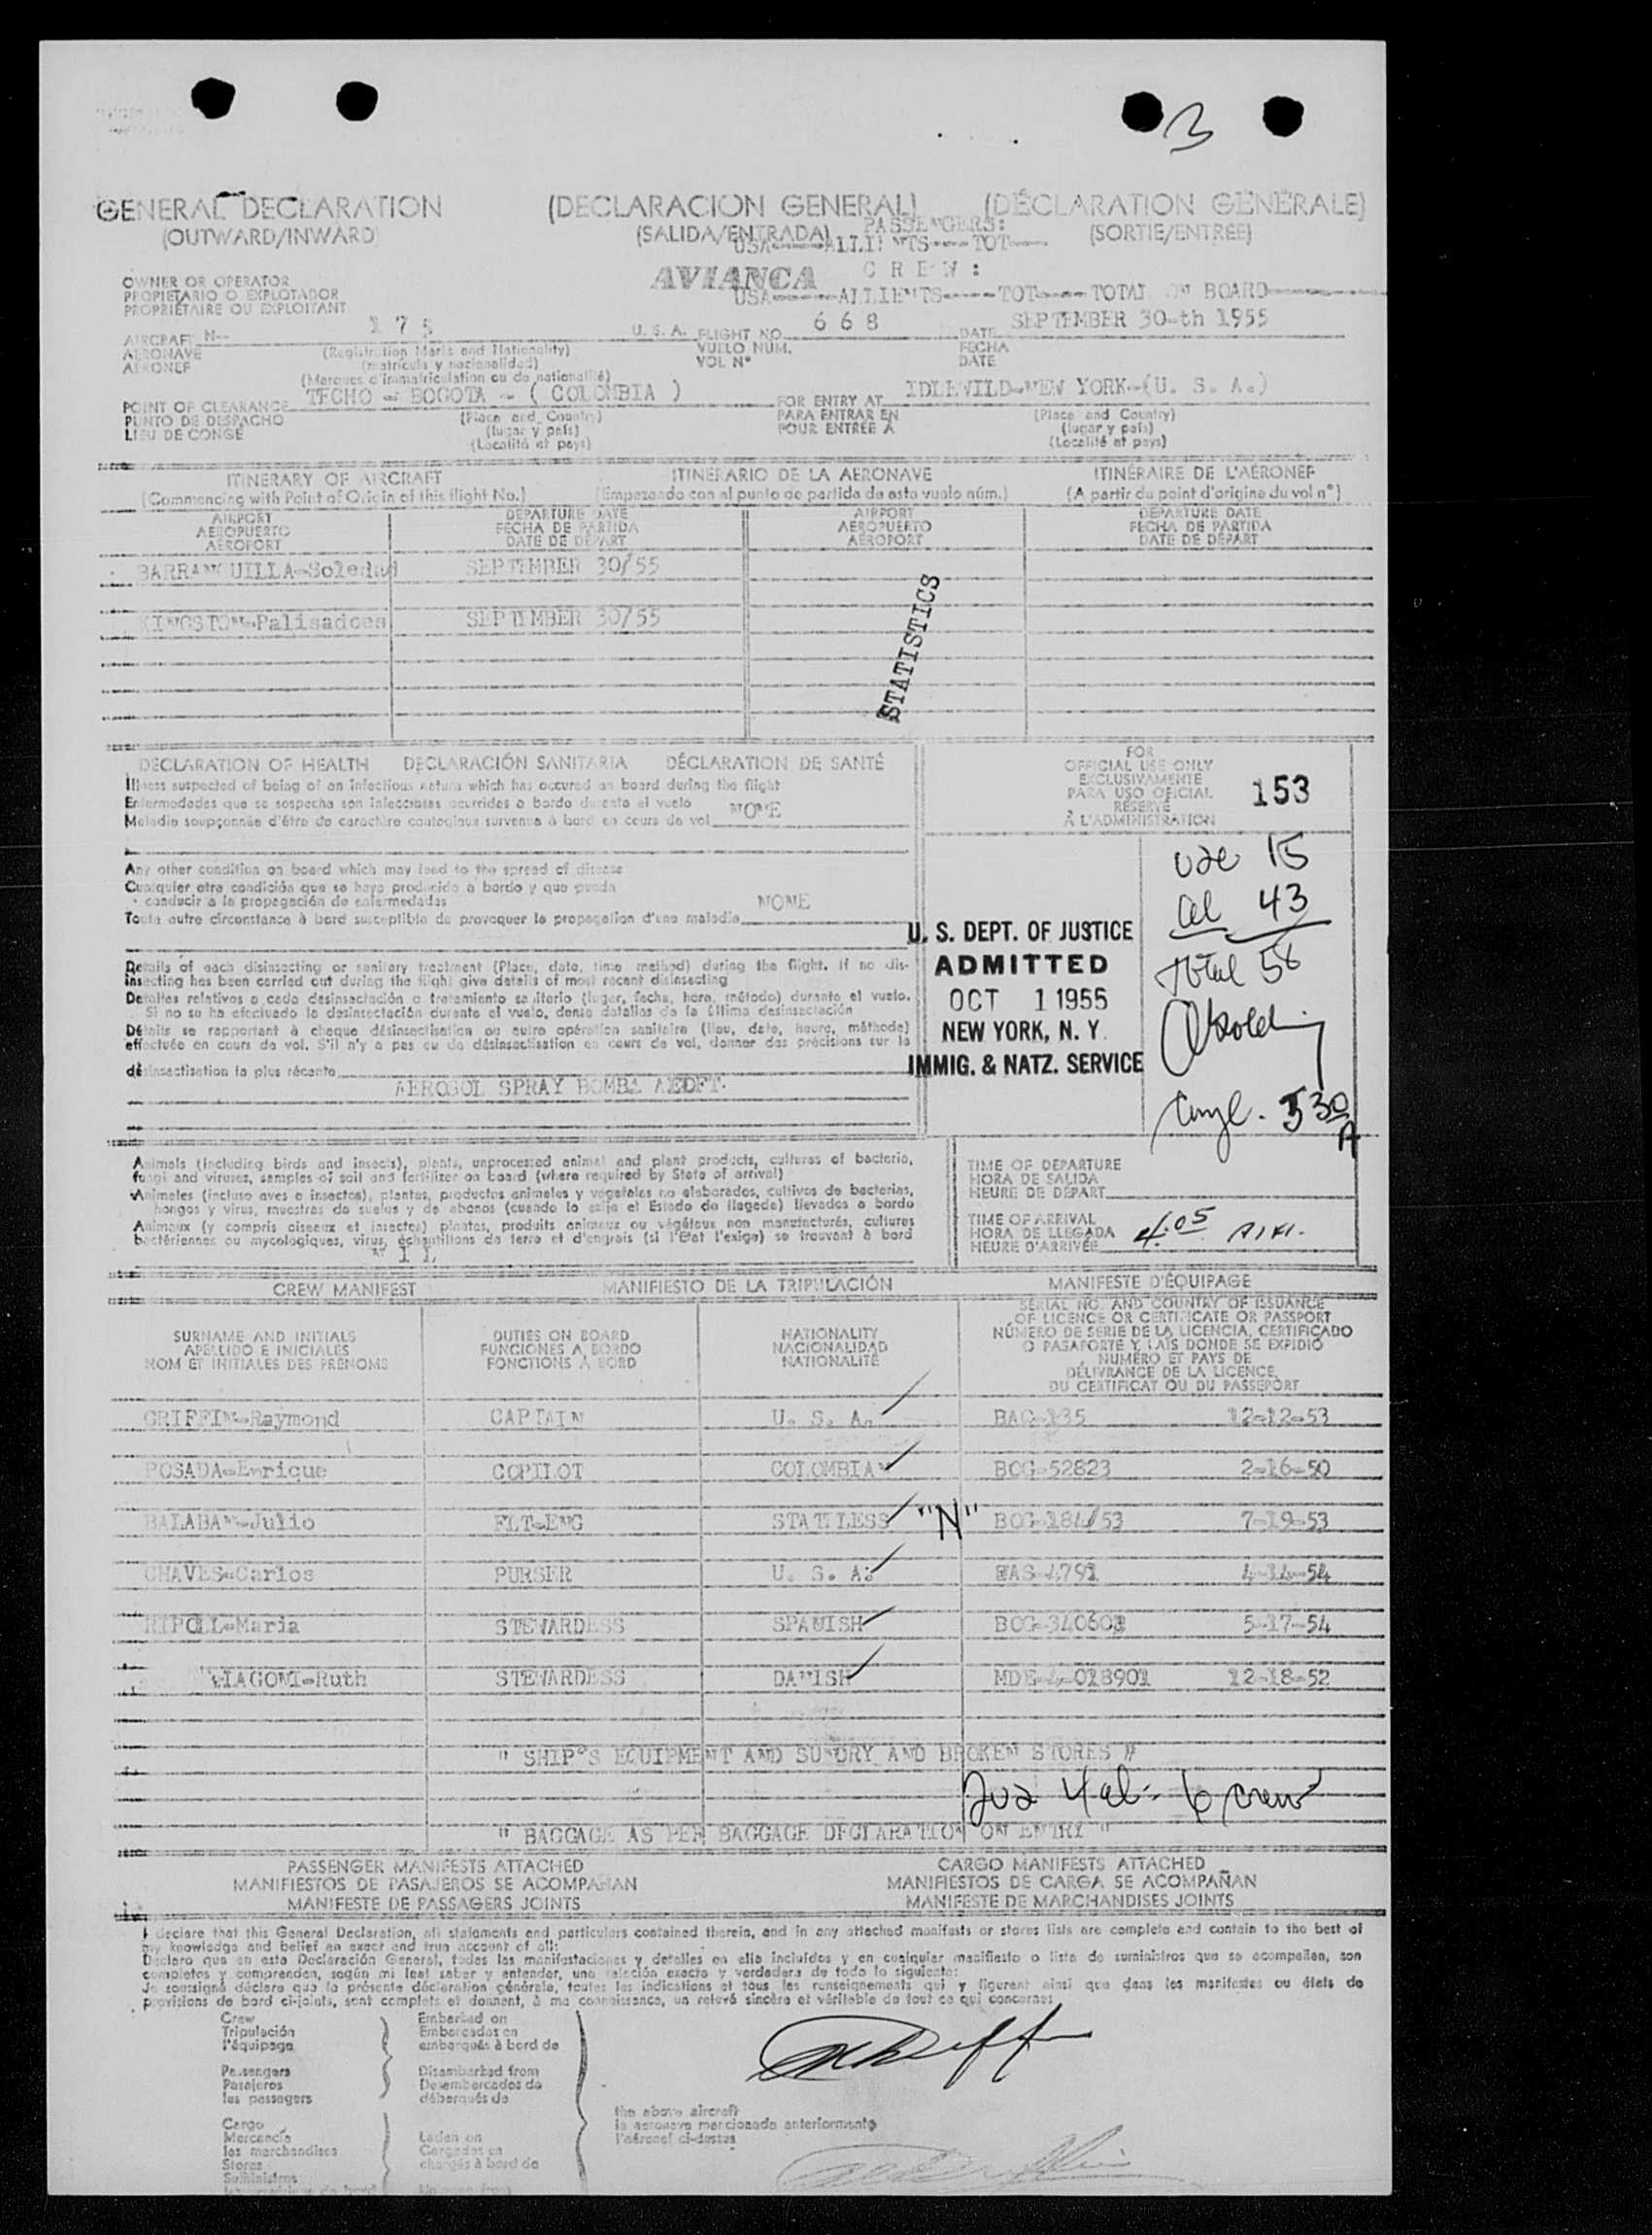 3
GENERAL DECLARATION (DECLARACION GENERAL) (DÉCLARATION GÉNÉRALE)
(OUTWARD/INWARD) (SALIDA/ENTRADA) (SORTIE/ENTRÉE)
PASSENGERS:
USA-----ALLIENTS----TOT----
AVIANCA C R E W :
USA-----ALLIENTS-----TOT-----TOTAL ON BOARD
OWNER OR OPERATOR
PROPIETARIO O EXPLOTADOR
PROPRIÉTAIRE OU EXPLOITANT
AIRCRAFT N-- 175 U. S. A. FLIGHT NO. 668 DATE SEPTEMBER 30-th 1955
AERONAVE (Registration Marks and Nationality) VUELO NÚM. FECHA
AÉRONEF (matrícula y nacionalidad) VOL N° DATE
(Marques d'immatriculation ou de nationalité)
POINT OF CLEARANCE TECHO - BOGOTA - ( COLOMBIA ) FOR ENTRY AT IDLEWILD-NEW YORK-(U. S. A.)
PUNTO DE DESPACHO (Place and Country) PARA ENTRAR EN (Place and Country)
LIEU DE CONGÉ (lugar y país) POUR ENTRÉE À (lugar y país)
(Localité et pays) (Localité et pays)
ITINERARY OF AIRCRAFT ITINERARIO DE LA AERONAVE ITINÉRAIRE DE L'AÉRONEF
(Commencing with Point of Origin of this flight No.) (Empezando con el punto de partida de este vuelo núm.) (A partir du point d'origine du vol n°)
AIRPORT DEPARTURE DATE AIRPORT DEPARTURE DATE
AEROPUERTO FECHA DE PARTIDA AEROPUERTO FECHA DE PARTIDA
AÉROPORT DATE DE DÉPART AÉROPORT DATE DE DÉPART
BARRANQUILLA-Soledad SEPTEMBER 30/55
KINGSTON-Palisadoes SEPTEMBER 30/55
STATISTICS
DECLARATION OF HEALTH DECLARACIÓN SANITARIA DÉCLARATION DE SANTÉ
Illness suspected of being of an infectious nature which has occured on board during the flight
Enfermedades que se sospecha son infecciosas ocurridas a bordo durante el vuelo
Maladie soupçonnée d'être de caractère contagieux survenue à bord en cours de vol NONE
Any other condition on board which may lead to the spread of disease
Cualquier otra condición que se haya producido a bordo y que pueda
conducir a la propagación de enfermedades
Toute autre circonstance à bord susceptible de provoquer la propagation d'une maladie NONE
Details of each disinsecting or sanitary treatment (Place, date, time method) during the flight. If no disinsecting has been carried out during the flight give details of most recent disinsecting
Detalles relativos a cada desinsectación o tratamiento sanitario (lugar, fecha, hora, método) durante el vuelo.
Si no se ha efectuado la desinsectación durante el vuelo, dense detalles de la última desinsectación
Détails se rapportant à chaque désinsectisation ou autre opération sanitaire (lieu, date, heure, méthode)
effectuée en cours de vol. S'il n'y a pas eu de désinsectisation en cours de vol, donner des précisions sur la
désinsectisation la plus récente
AEROSOL SPRAY BOMBA
FOR
OFFICIAL USE ONLY
EXCLUSIVAMENTE
PARA USO OFICIAL
RÉSERVÉ
À L'ADMINISTRATION
153
15
al 43
Total 58
530
A
U. S. DEPT. OF JUSTICE
ADMITTED
OCT 1 1955
NEW YORK, N. Y.
IMMIG. & NATZ. SERVICE
Animals (including birds and insects), plants, unprocessed animal and plant products, cultures of bacteria,
fungi and viruses, samples of soil and fertilizer on board (where required by State of arrival)
Animales (incluso aves e insectos), plantas, productos animales y vegetales no elaborados, cultivos de bacterias,
hongos y virus, muestras de suelos y de abonos (cuando lo exija el Estado de llegada) llevados a bordo
Animaux (y compris oiseaux et insectes) plantes, produits animaux ou végétaux non manufacturés, cultures
bactériennes ou mycologiques, virus, échantillons de terre et d'engrais (si l'État l'exige) se trouvant à bord
N I L
TIME OF DEPARTURE
HORA DE SALIDA
HEURE DE DÉPART
TIME OF ARRIVAL
HORA DE LLEGADA
HEURE D'ARRIVÉE 4:05 A.M.
CREW MANIFEST MANIFIESTO DE LA TRIPULACIÓN MANIFESTE D'ÉQUIPAGE
SURNAME AND INITIALS
APELLIDO E INICIALES
NOM ET INITIALES DES PRÉNOMS
DUTIES ON BOARD
FUNCIONES A BORDO
FONCTIONS À BORD
NATIONALITY
NACIONALIDAD
NATIONALITÉ
SERIAL NO. AND COUNTRY OF ISSUANCE
OF LICENCE OR CERTIFICATE OR PASSPORT
NÚMERO DE SERIE DE LA LICENCIA, CERTIFICADO
O PASAPORTE Y PAÍS DONDE SE EXPIDIÓ
NUMÉRO ET PAYS DE
DÉLIVRANCE DE LA LICENCE,
DU CERTIFICAT OU DU PASSEPORT
GRIFFIN-Raymond CAPTAIN U. S. A. BAQ-135 12-12-53
POSADA-Enrique COPILOT COLOMBIAN BOG-52823 2-16-50
BALABAN-Julio FLT-ENG STATELESS "N" BOG-184/53 7-19-53
CHAVES-Carlos PURSER U. S. A. 4791 4-14-54
RIPOLL-Maria STEWARDESS SPANISH BOG-340603 5-17-54
Ruth STEWARDESS DANISH MDE-4-018901 12-18-52
" SHIP'S EQUIPMENT AND SUNDRY AND BROKEN STORES "
4 al = 6 crew
" BAGGAGE AS PER BAGGAGE DECLARATION ON ENTRY "
PASSENGER MANIFESTS ATTACHED CARGO MANIFESTS ATTACHED
MANIFIESTOS DE PASAJEROS SE ACOMPAÑAN MANIFIESTOS DE CARGA SE ACOMPAÑAN
MANIFESTE DE PASSAGERS JOINTS MANIFESTE DE MARCHANDISES JOINTS
I declare that this General Declaration, all statements and particulars contained therein, and in any attached manifests or stores lists are complete and contain to the best of
my knowledge and belief an exact and true account of all:
Declaro que en esta Declaración General, todas las manifestaciones y detalles en ella incluidos y en cualquier manifiesto o lista de suministros que se acompañen, son
completos y comprenden, según mi leal saber y entender, una relación exacta y verdadera de todo lo siguiente:
Je soussigné déclare que la présente déclaration générale, toutes les indications et tous les renseignements qui y figurent ainsi que dans les manifestes ou états de
provisions de bord ci-joints, sont complets et donnent, à ma connaissance, un relevé sincère et véritable de tout ce qui concerne:
Crew Embarked on
Tripulación Embarcados en
l'équipage embarqués à bord de
Passengers Disembarked from
Pasajeros Desembarcados de
les passagers débarqués de
the above aircraft
la aeronave mencionada anteriormente
l'aéronef ci-dessus
Cargo
Mercancía Laden on
les marchandises Cargados en
Stores chargés à bord de
Suministros